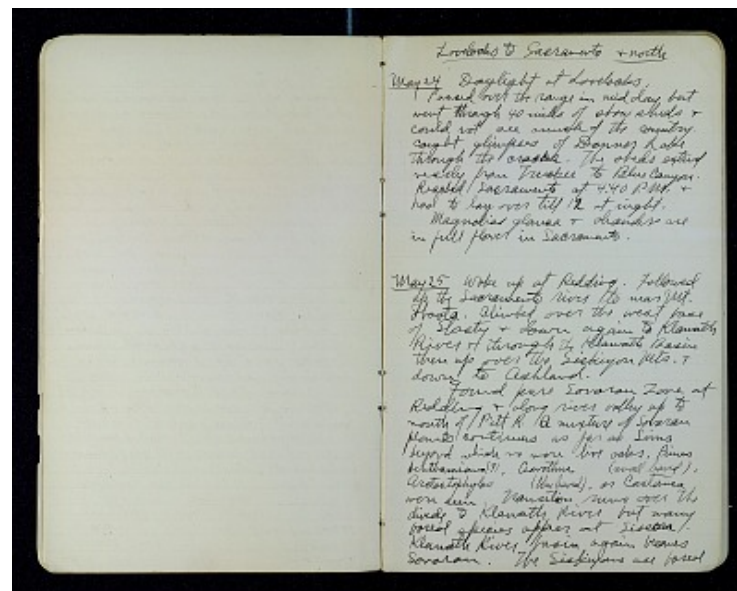 Lovelocks to Sacramento & north
May 24 Daylight at Lovelocks.
Passed over the range in mid day but
went through 40 miles of snow sheds &
could not see much of the country.
caught glimpses of Donner Lake
through the cracks. The sheds extend
nearly from Truckee to Blue Canyon.
Reached Sacramento at 4:40 P.M. &
had to lay over till 12 at night.
Magnolias glauca & oleander are
in full flower in Sacramento.
May 25 Woke up at Redding. Followed
up the Sacramento river to near Mt.
Shasta. Climbed over the west base
of Shasty & down again to Klamath
River & through the Klamath Basin
then up over the Siskiyou Mts. &
down to Ashland.
Found pure Sonoran Zone at
Redding & along river valley up to
mouth of Pitt R. A mixture of Sonoran
plants continues as far as Sims
beyond which no more live oaks, Pinus
(?), Ceanothus (small leaved),
Arctostaphylos (blue leaved), or Castanea
were seen. Transition runs over the
divide to Klamath River but many
boreal species appear at Sisson.
Klamath River basin again becomes
Sonoran. The Siskiyous are boreal